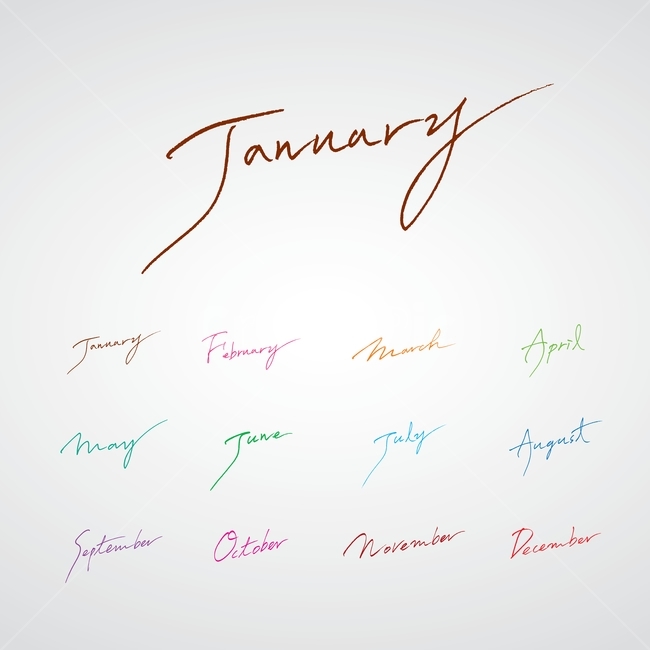 January
January February March April
May June July August
September October November December